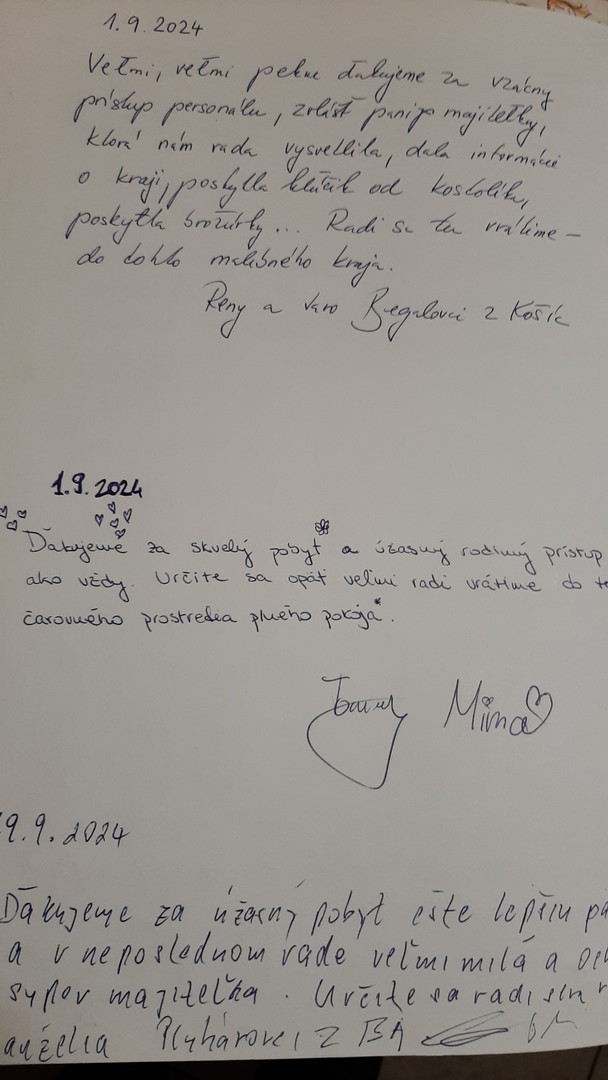 1.9.2024
Veľmi, veľmi pekne ďakujeme za vzácny
prístup personálu, zvlášť panipo majiteľky,
ktorá nám rada vysvetlila, dala informácie
o kraji, poskytla kľúčik od kostolíku,
poskytla brožúrky... Radi sa tu vrátime –
do tohto malebného kraja.
Reny a Varo Begalovci z Košíc
1.9.2024
Ďakujeme za skvelý pobyt a úžasný rodinný prístup
ako vždy. Určite sa opäť veľmi radi vrátime do
čarovného prostredia plného pokoja*.
Mima
9.9.2024
Ďakujeme za úžasný pobyt ešte lepšiu
a v neposlednom rade veľmi milá a
super majiteľka. Určite sa radi sem
Plyhárovci z BA